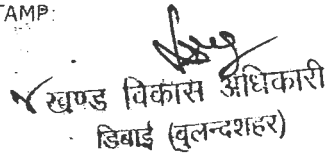 TAMP:
खण्ड विकास अधिकारी
डिबाई (बुलन्दशहर)